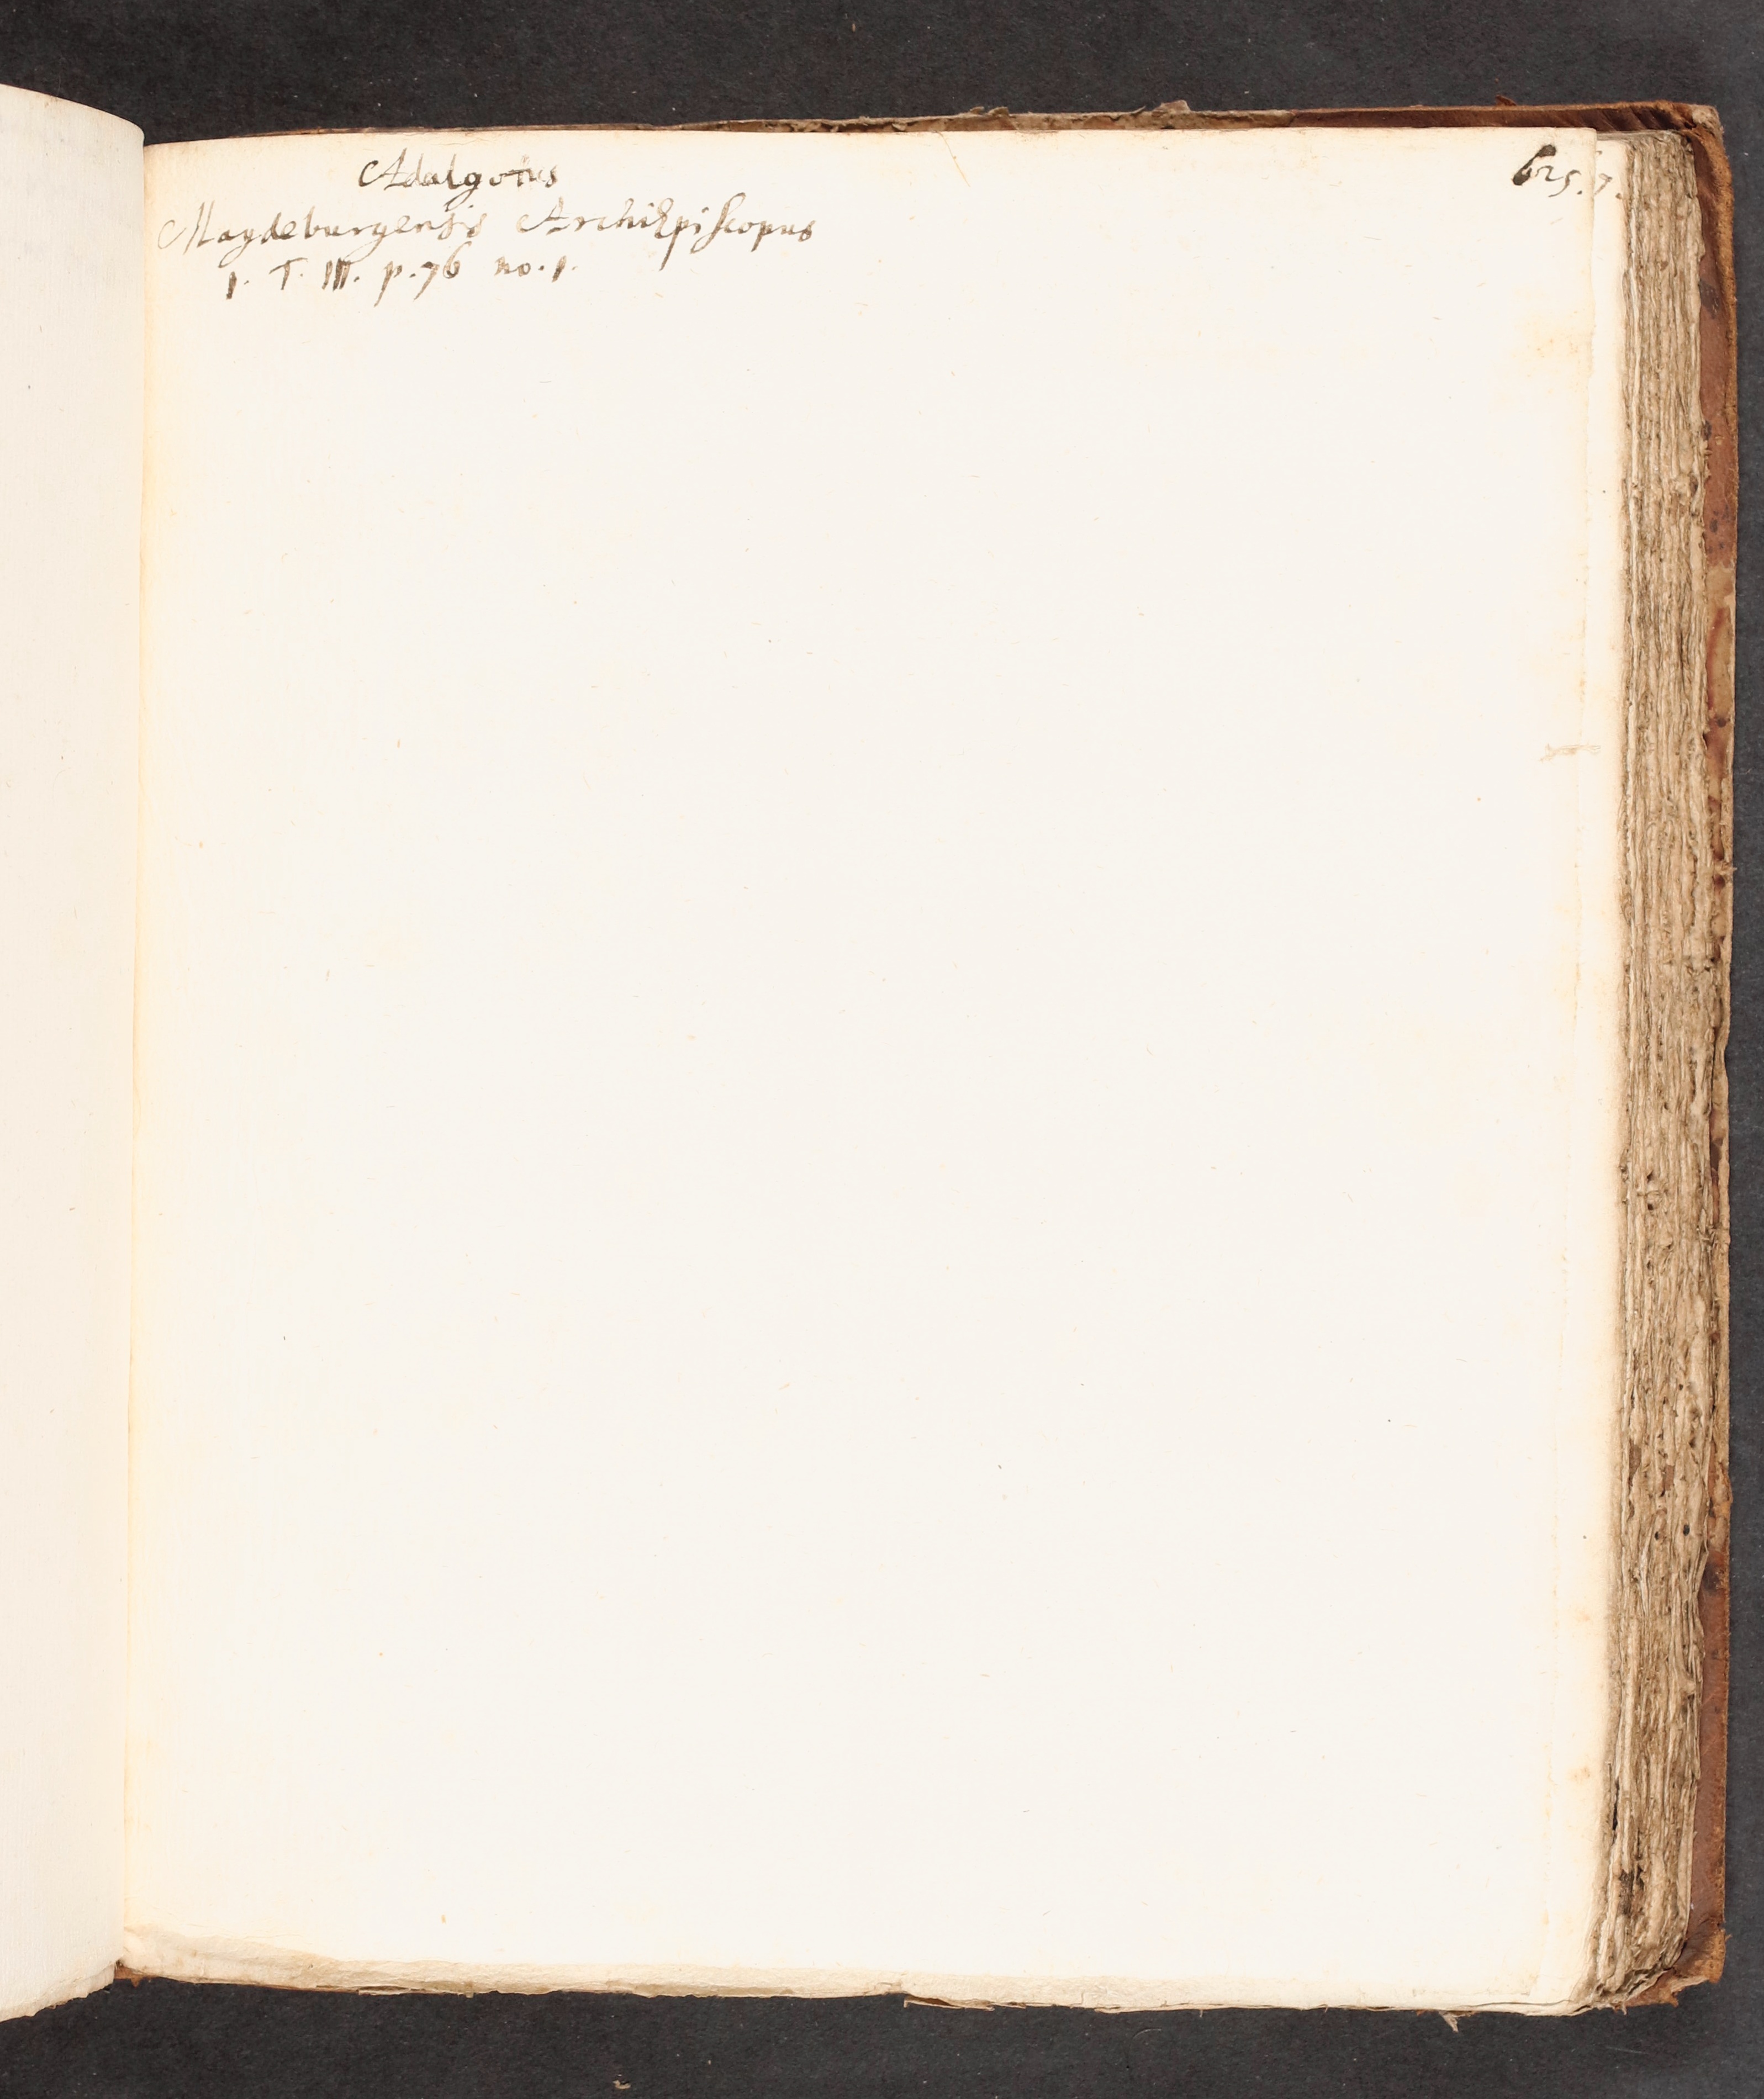 625.
7.
Adalgotus
Magdeburgensis ArchiEpiscopus
1. T. III. p. 76 no. 1.